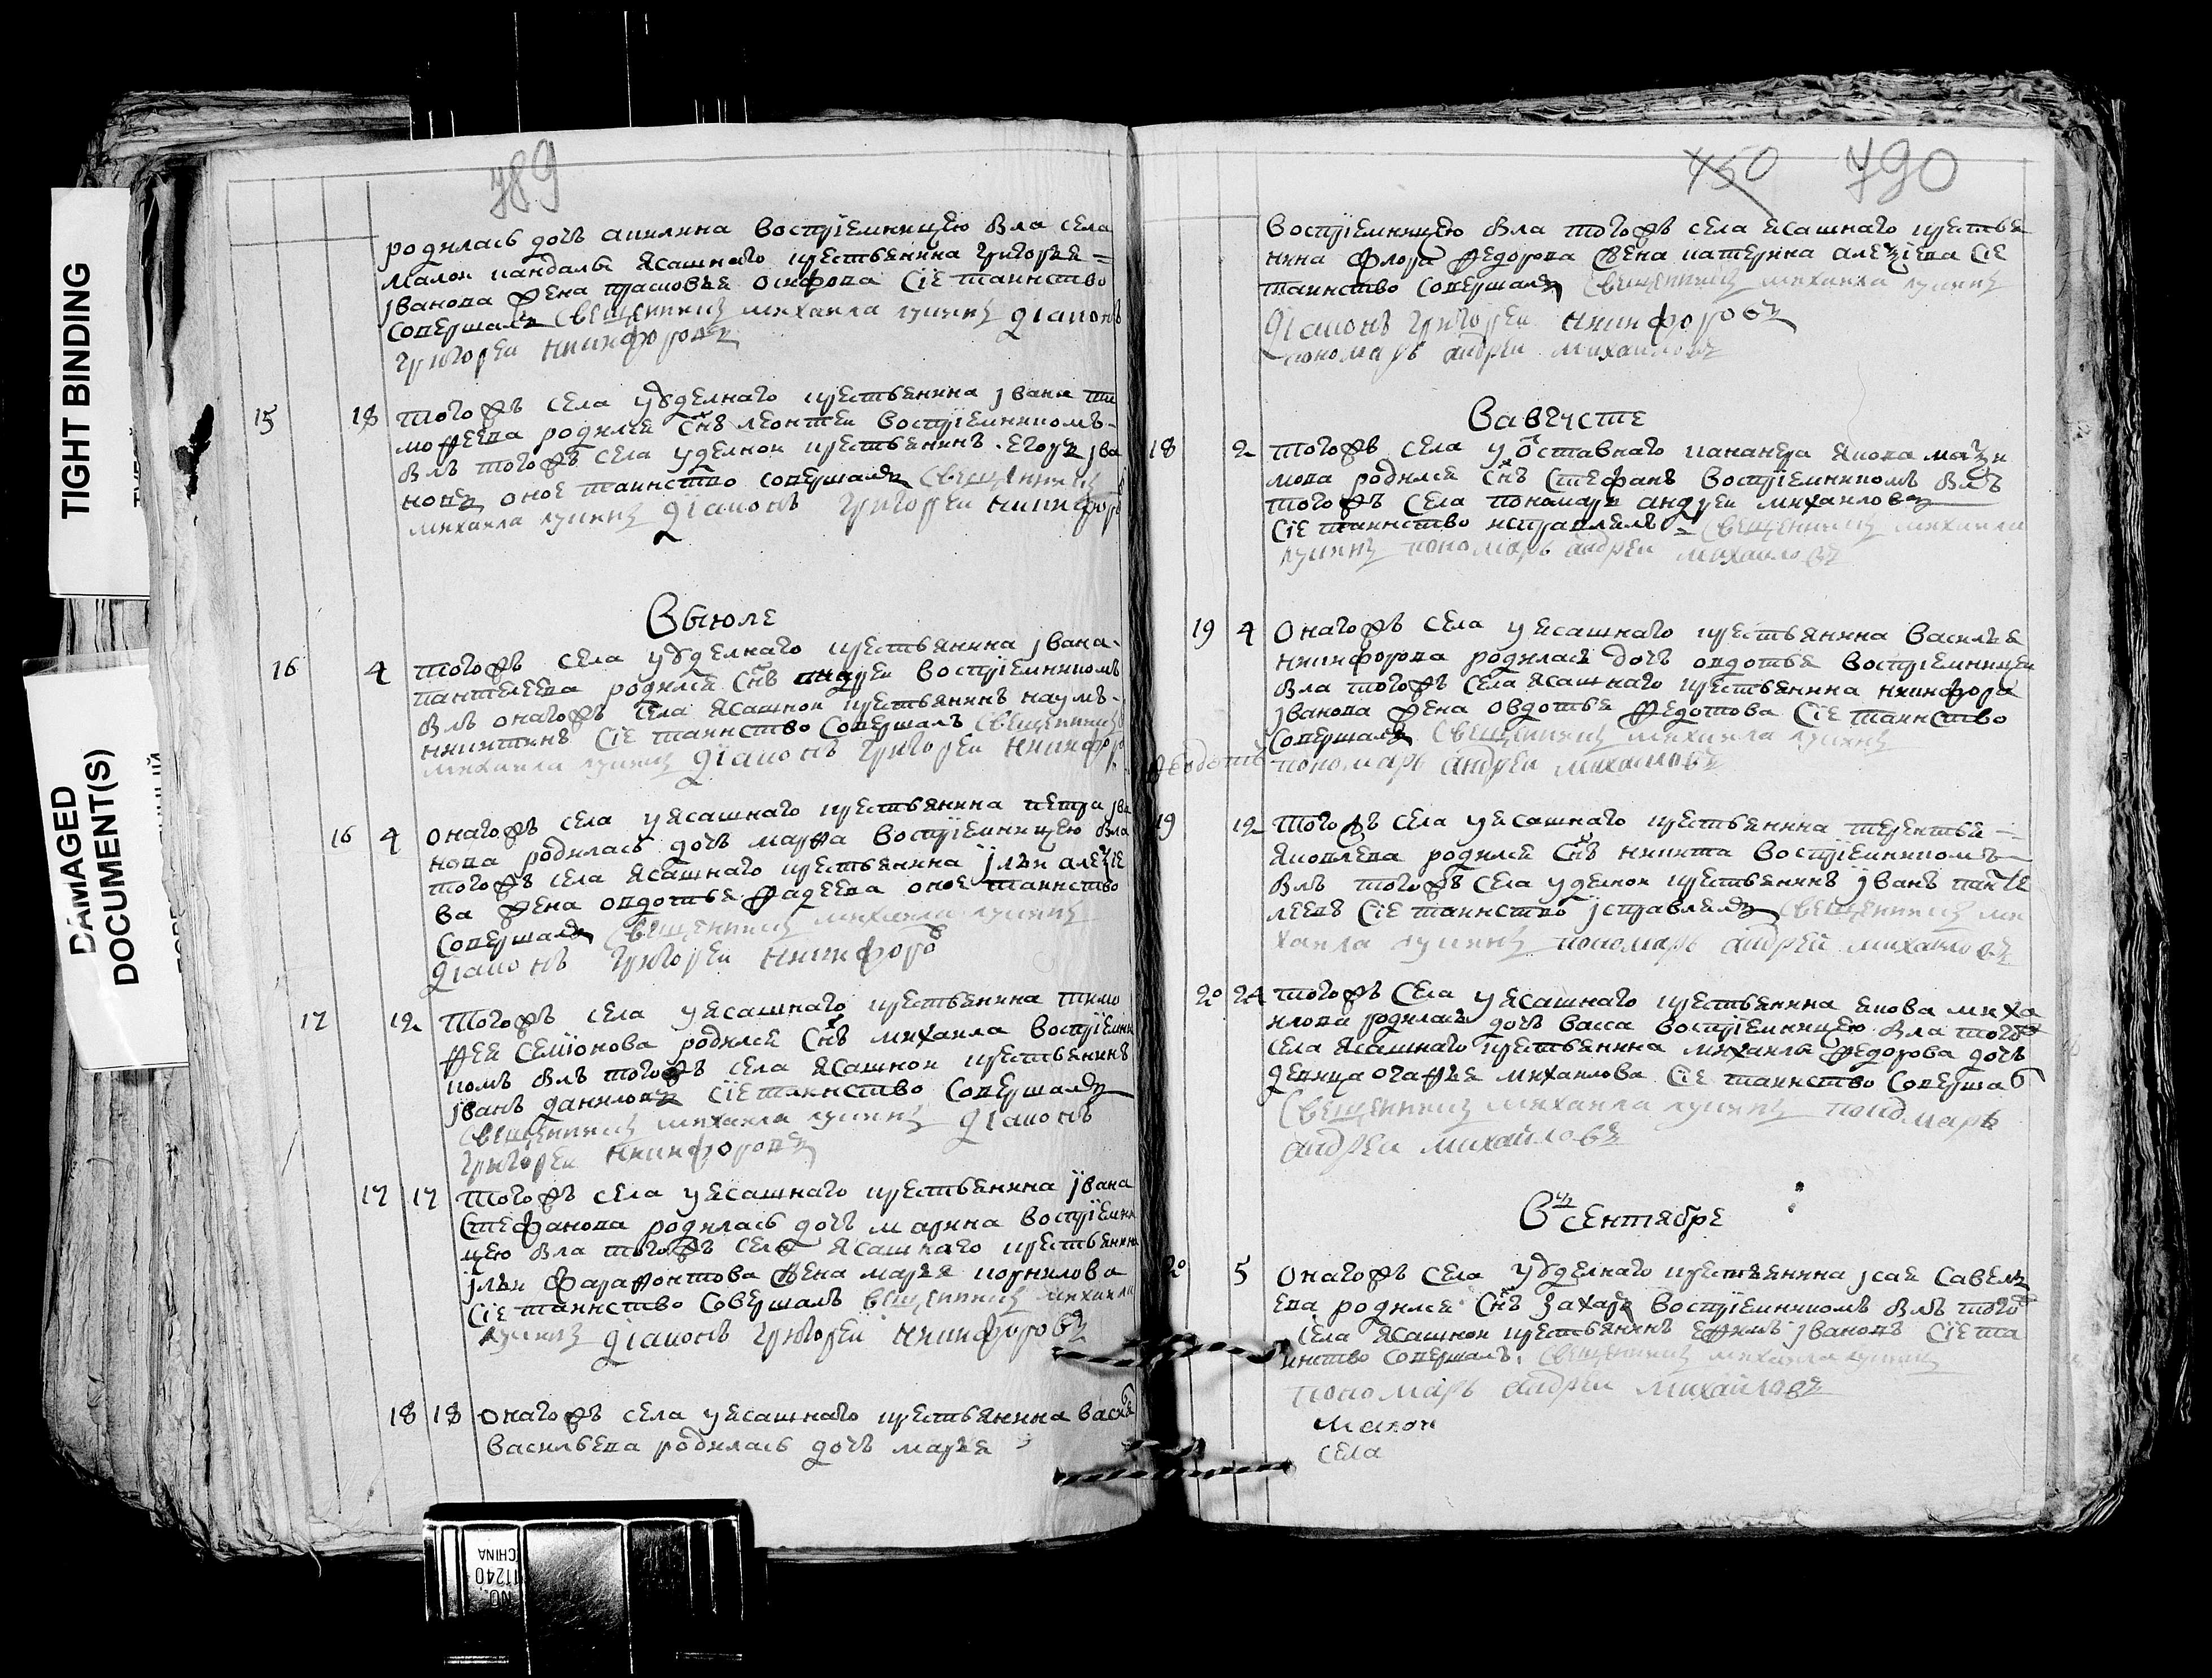 TIGHT BINDING
DAMAGED
DOCUMENT(S)
789
родилась дочь акилина восприемницею была села
малои кандалы ясашнаго крестьянина григорья
iванова жена прасковья осифова сiе таинство
совершалъ священникъ михаила лукинъ дiаконъ
григореи никифоровъ
15 18 тогожъ села у уделнаго крестьянина iвана ти
мофеева родился снъ леонтеи восприемникомъ
былъ тогожъ села уделнои крестьянинъ егоръ iва
новъ оное таинство совершалъ священникъ
михаила лукинъ дiаконъ григореи никифоро
Выюле
16 4 тогожъ села у уделнаго крестьянина iвана
пантелеева родился снъ андреи восприемникомъ
былъ онагожъ села ясашнои крестьянинъ наумъ
никитинъ сiе таинство совершалъ священникъ
михаила лукинъ дiаконъ григореи никифоро
16 4 онагожъ села у ясашнаго крестьянина петра iва
нова родилась дочь марфа восприемницею была
тогожъ села ясашнаго крестьянина iльи алеѯiе
ва жена овдотья фадеева оное таинство
совершалъ священникъ михаила лукинъ
дiаконъ григореи никифоро
17 12 тогожъ села у ясашнаго крестьянина тимо
фея семiонова родился снъ михаила восприемни
комъ былъ тогожъ села ясашнои крестьянинъ
iванъ даниловъ сiе таинство совершалъ
священникъ михаила лукинъ дiаконъ
григореи никифоровъ
17 17 тогожъ села у ясашнаго крестьянина iвана
стефанова родилась дочь марина восприемни
цею была тогожъ села ясашнаго крестьянина
iльи фарафонтова жена марья корнилова
сiе таинство совершалъ священникъ михаила
лукинъ дiаконъ григореи никифоровъ
18 18 онагожъ села у ясашнаго крестьянина василья
васильева родилась дочь марья
450 790
восприемницею была тогожъ села ясашнаго крестья
нина флора федорова жена катерина алеѯiева сiе
таинство совершалъ священникъ михаила лукинъ
дiаконъ григореи никифоровъ
пономарь андреи михаиловъ
Вавгусте
18 2 тогожъ села у оставнаго кананера якова маѯи
мова родился снъ стефанъ восприемникомъ былъ
тогожъ села пономарь андреи михаиловъ
сiе таинство исправлялъ священникъ михаила
лукинъ пономарь андреи михаиловъ
19 4 онагожъ села у ясашнаго крестьянина василья
никифорова родилась дочь овдотья восприемницею
была тогожъ села ясашнаго крестьянина никифора
iванова жена овдотья федотова сiе таинство
совершалъ священникъ михаила лукинъ
пономарь андреи михаиловъ
19 12 тогожъ села у ясашнаго крестьянина терентья
яковлева родился снъ никита восприемникомъ
былъ тогожъ села уделнои крестьянинъ iванъ панте
леевъ сiе таинство iсправлялъ священникъ ми
хаила лукинъ пономарь андреи михаиловъ
20 24 тогожъ села у ясашнаго крестьянина якова миха
илова родилась дочь васса восприемницею была тогож
села ясашнаго крестьянина михаилы федорова дочь
девица огафья михаилова сiе таинство соверша
священникъ михаила лукинъ пономарь
андреи михаиловъ
Вцсентябре
20 5 онагожъ села у уделнаго крестьянина iсая савель
ева родился снъ захаръ восприемникомъ былъ того
села ясашнои крестьянинъ ефимъ iвановъ сiе та
инство совершалъ священникъ михаила лукинъ
пономарь андреи михаиловъ
села